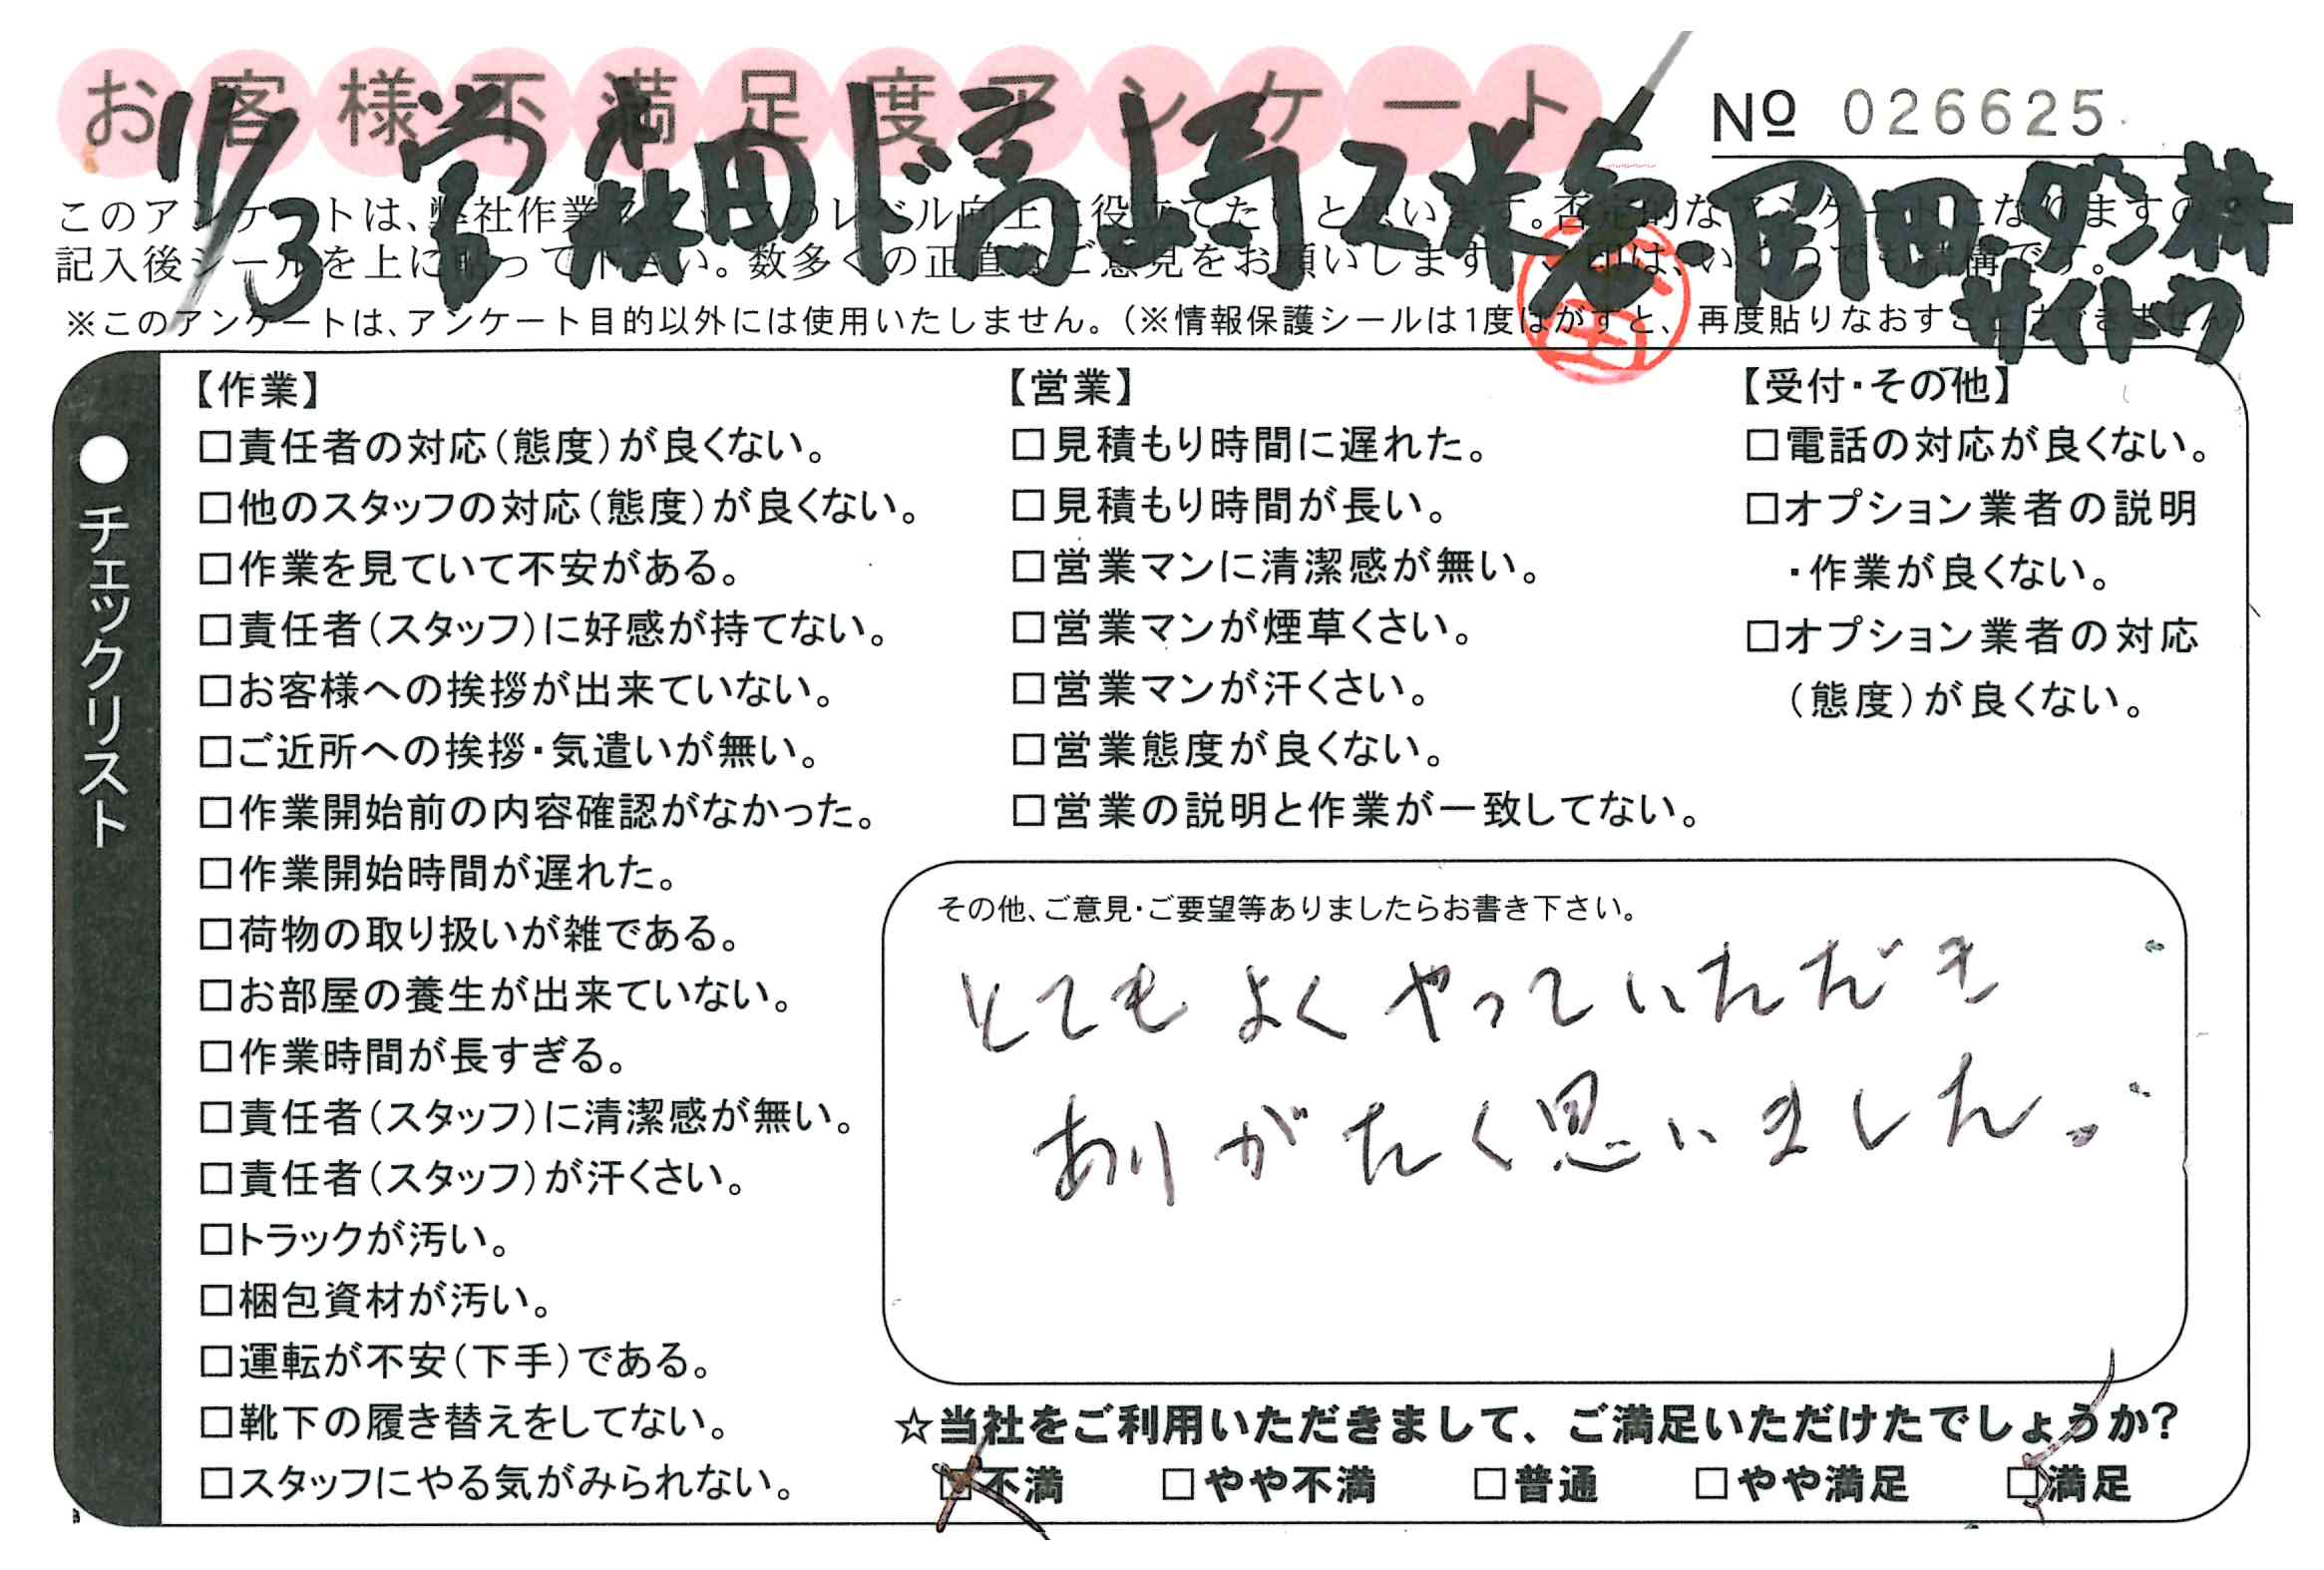 お客様不満足度アンケート
№ 026625
11/3
このアンケートは、弊社作業スタッフのレベル向上に役立てたいと思います。否定的なアンケートになりますので
記入後シールを上に貼って下さい。数多くの正直なご意見をお願いします
※このアンケートは、アンケート目的以外には使用いたしません。(※情報保護シールは1度はがすと、再度貼りなおすことはできません)
サイトウ
●チェックリスト
【作業】
□責任者の対応(態度)が良くない。
□他のスタッフの対応(態度)が良くない。
□作業を見ていて不安がある。
□責任者(スタッフ)に好感が持てない。
□お客様への挨拶が出来ていない。
□ご近所への挨拶・気遣いが無い。
□作業開始前の内容確認がなかった。
□作業開始時間が遅れた。
□荷物の取り扱いが雑である。
□お部屋の養生が出来ていない。
□作業時間が長すぎる。
□責任者(スタッフ)に清潔感が無い。
□責任者(スタッフ)が汗くさい。
□トラックが汚い。
□梱包資材が汚い。
□運転が不安(下手)である。
□靴下の履き替えをしてない。
□スタッフにやる気がみられない。
【営業】
□見積もり時間に遅れた。
□見積もり時間が長い。
□営業マンに清潔感が無い。
□営業マンが煙草くさい。
□営業マンが汗くさい。
□営業態度が良くない。
□営業の説明と作業が一致してない。
【受付・その他】
□電話の対応が良くない。
□オプション業者の説明
・作業が良くない。
□オプション業者の対応
(態度)が良くない。
その他、ご意見・ご要望等ありましたらお書き下さい。
とてもよくやっていただき
ありがたく思いました。
☆当社をご利用いただきまして、ご満足いただけたでしょうか?
□不満 □やや不満 □普通 □やや満足 □満足